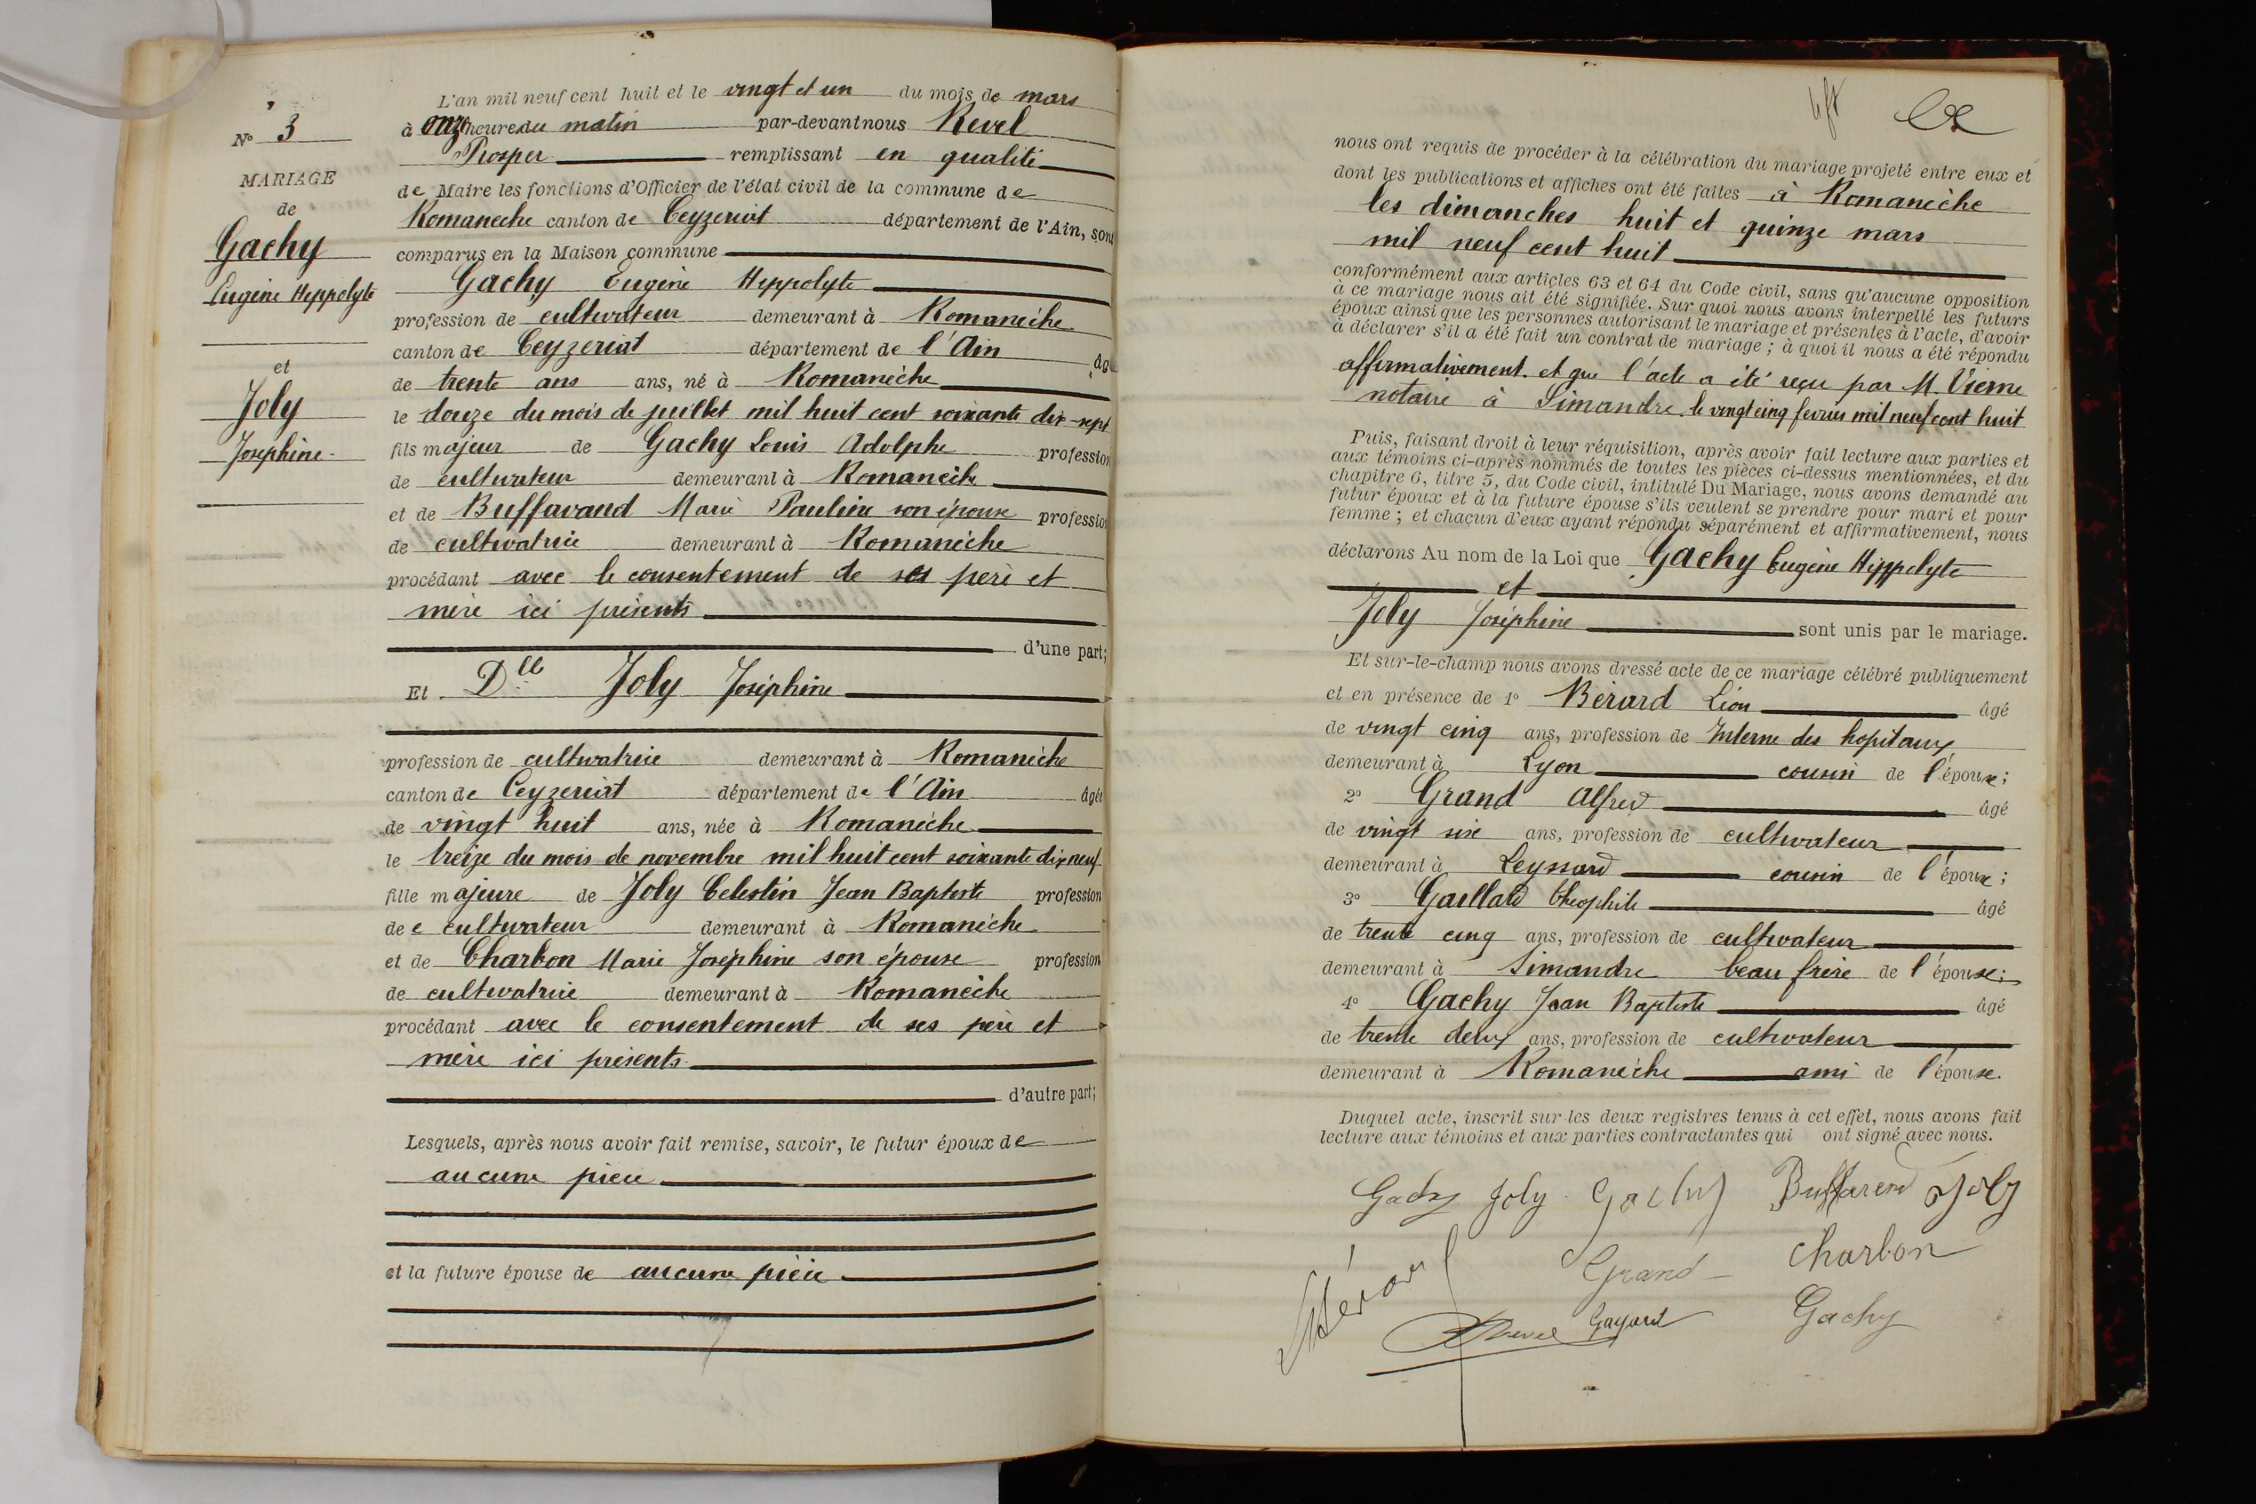 N° 3
MARIAGE
de
Gachy
Eugène Hippolyte
et
Joly
Joséphine
L'an mil neuf cent huit et le vingt et un du mois de mars
à onze heures du matin par-devant nous Revel
Prosper remplissant en qualité
de Maire les fonctions d'Officier de l'état civil de la commune de
Romanèche canton de Ceyzeriat département de l'Ain, sont
comparus en la Maison commune
Gachy Eugène Hyppolyte
profession de cultivateur demeurant à Romanèche
canton de Ceyzeriat département de l'Ain âgé
de trente ans ans, né à Romanèche
le douze du mois de juillet mil huit cent soixante dix-sept
fils majeur de Gachy Louis Adolphe profession
de cultivateur demeurant à Romanèche
et de Buffavand Marie Pauline son épouse profession
de cultivatrice demeurant à Romanèche
procédant avec le consentement de ses père et
mère ici présents
d'une part;
Et Dlle Joly Joséphine
profession de cultivatrice demeurant à Romanèche
canton de Ceyzeriat département de l'Ain âgée
de vingt huit ans, née à Romanèche
le treize du mois de novembre mil huit cent soixante dix neuf
fille majeure de Joly Celestin Jean Baptiste profession
de c cultivateur demeurant à Romanèche
et de Charbon Marie Joséphine son épouse profession
de cultivatrice demeurant à Romanèche
procédant avec le consentement de ses père et
mère ici présents
d'autre part;
Lesquels, après nous avoir fait remise, savoir, le futur époux de
aucune pièce
et la future épouse de aucune pièce
nous ont requis de procéder à la célébration du mariage projeté entre eux et
dont les publications et affiches ont été faites à Romanèche
les dimanches huit et quinze mars
mil neuf cent huit
conformément aux articles 63 et 64 du Code civil, sans qu'aucune opposition
à ce mariage nous ait été signifiée. Sur quoi nous avons interpellé les futurs
époux ainsi que les personnes autorisant le mariage et présentes à l'acte, d'avoir
à déclarer s'il a été fait un contrat de mariage; à quoi il nous a été répondu
affirmativement. et que l'acte a été reçu par M. Vierne
notaire à Simandre le vingt cinq fevrier mil neuf cent huit
Puis, faisant droit à leur réquisition, après avoir fait lecture aux parties et
aux témoins ci-après nommés de toutes les pièces ci-dessus mentionnées, et du
chapitre 6, titre 5, du Code civil, intitulé Du Mariage, nous avons demandé au
futur époux et à la future épouse s'ils veulent se prendre pour mari et pour
femme; et chacun d'eux ayant répondu séparément et affirmativement, nous
déclarons Au nom de la Loi que Gachy Eugène Hippolyte
et
Joly Joséphine sont unis par le mariage.
Et sur-le-champ nous avons dressé acte de ce mariage célébré publiquement
et en présence de 1° Bérard Léon âgé
de vingt cinq ans, profession de Interne des hopitaux
demeurant à Lyon cousin de l'épouse;
2° Grand Alfred âgé
de vingt six ans, profession de cultivateur
demeurant à Leyssard cousin de l'époux;
3° Gaillard théophile âgé
de trente cinq ans, profession de cultivateur
demeurant à Simandre beau frère de l'épouse;
4° Gachy Jean Baptiste âgé
de trente deux ans, profession de cultivateur
demeurant à Romanèche ami de l'épouse.
Duquel acte, inscrit sur les deux registres tenus à cet effet, nous avons fait
lecture aux témoins et aux parties contractantes qui ont signé avec nous.
Gachy Joly Gachy Buffavand Joly
Bérard Grand Charbon
Revel Gayard Gachy